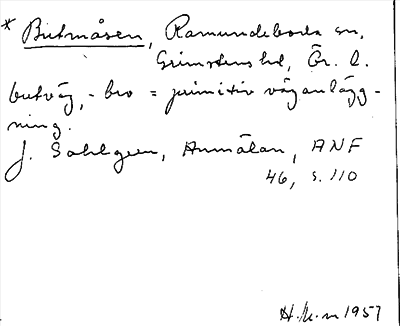 * Butmåsen, Ramundeboda sn,
Grimstens hd, Ör. l.
butväg, - bro = primitiv vägანlägg-
ning.
J. Sahlgren, Anmälan, ANF
46, s. 110
1957